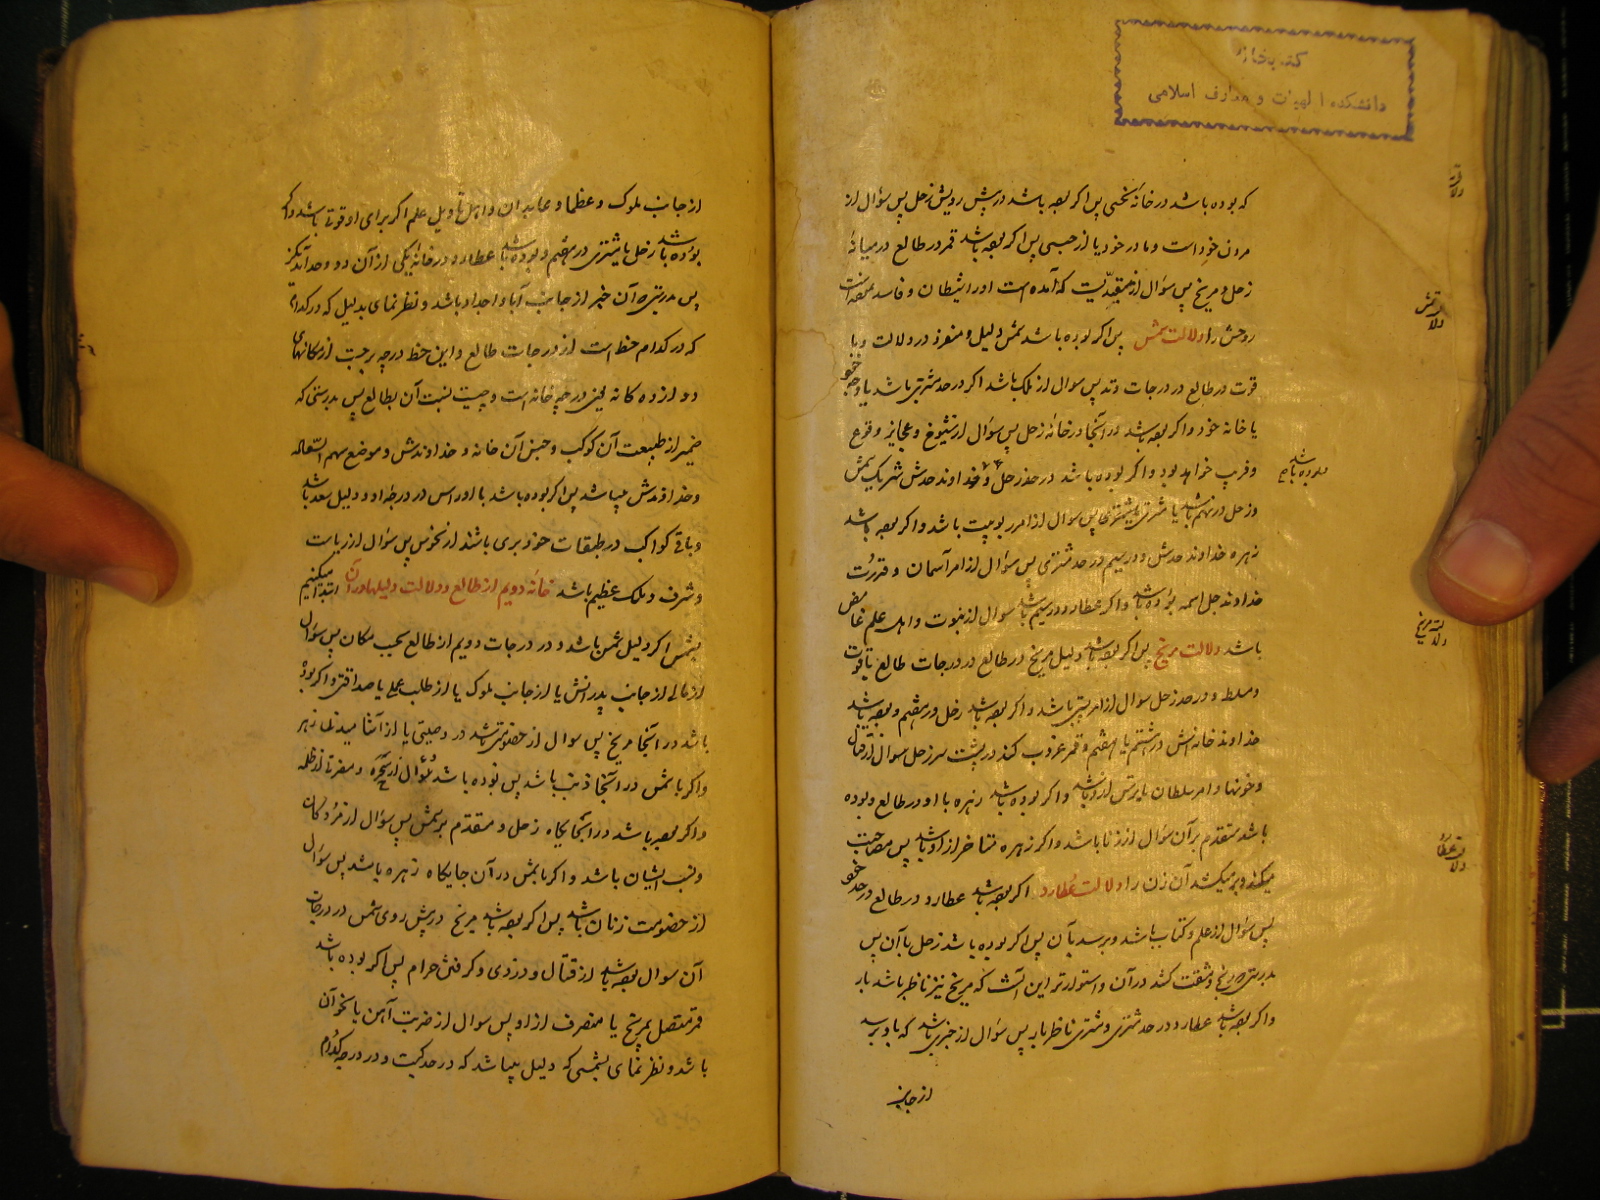 کتابخانه
دانشکده الهیات و معارف اسلامی
که بوده باشد در خانهٔ نحسی پس اکر بوده باشد در پیش رویش زحل پس سؤال از
مردن خود است و مادر خود یا از حبسی پس اکر بوده باشد قمر در طالع در میانهٔ
زحل و مریخ پس سؤال از است که آمده است او را شیطان و فاسد است
روحش را دلالت شمس پس اکر بوده باشد شمس دلیل و منفرد در دلالت و با
قوت در طالع در درجات وتد پس سوال از ملک باشد اکر در حد مشتری باشد یا
یا خانه خود و اکر بوده باشد در آنجا در خانهٔ زحل پس سؤال از شیوخ و عجایز و
و قریب خواهد بود و اکر بوده باشد در حد زحل و خداوند حدش شریک شمس
بوده باشد
و زحل در نهم باشد یا مشتری پس سوال از امر ربوبیت باشد و اکر بوده باشد
زهره خداوند حدش و در سیم در حد مشتری پس سؤال از امر آسمان و قدرت
خداوند جل اسمه بوده باشد و اکر عطارد در سیم باشد سؤال از نبوت و اهل علم غامض
باشد دلالت مریخ پس اکر بوده باشد دلیل مریخ در طالع در درجات طالع با قوت
دلالت مریخ
و مسلط و در حد زحل سوال از باشد و اکر بوده باشد زحل در هفتم و بوده باشد
خداوند خانه‌اش در هشتم یا هفتم و قمر غروب کند در پشت سر زحل سوال از قتال
و خونها و امر سلطان یا ترس از او باشد و اکر بوده باشد زهره با او در طالع و بوده
باشد متقدم بر آن سؤال از زنا باشد و اکر زهره متاخر از او باشد پس مصاحبت
میکند و بر میکشد آن زن را دلالت عطارد اکر بوده باشد عطارد در طالع در حد خود
دلالت عطارد
پس سؤال از علم و کتاب باشد و برسد بآن پس اکر بوده باشد زحل با آن پس
بدرستیکه رنج و مشقت کشد در آن و استوارتر این است که مریخ نیز ناظر باشد باو
و اکر بوده باشد عطارد در حد مشتری و مشتری ناظر باو پس سؤال از خبری باشد که باو برسد
از جانب
از جانب ملوک و عظما و عابدان و اهل تأویل علم اکر برای او قوت باشد و اکر
بوده باشد زحل یا مشتری در هفتم و بوده باشد عطارد در خانهٔ یکی از آن دو و حد آن دیکر
پس بدرستیکه آن خبر از جانب آبا و اجداد باشد و نظر نمای بدلیل که در کدام
که در کدام حظ است از درجات طالع و این حظ درجه چیست از مکانهای
دوازده کانه یعنی در چه خانه است و چیست نسبت آن بطالع پس بدرستی که
ضمیر از طبیعت آن کوکب و جنس آن خانه و خداوندش و موضع سهم السعاده
و خداوندش میباشد پس اکر بوده باشد با او راس در درجهٔ او و دلیل سعد باشد
و باقی کواکب در طبقات خود بری باشند از نحوس پس سؤال از ریاست
و شرف و ملک عظیم باشد خانهٔ دویم از طالع و دلالت دلیلها در آن ابتدا میکنیم
بشمس اکر دلیل شمس باشد و در درجات دویم از طالع بحسب مکان پس سؤال
از مالی از جانب پدرانش یا از جانب ملوک یا از طلب عملی یا صداقتی و اکر بوده
باشد در آنجا مریخ پس سوال از خصومتی باشد در وصیتی یا از آشامیدنها زهر
و اکر با شمس در آنجا ذنب باشد پس بوده باشد سؤال از سحر و مفر تا از ظلمه
و اکر بوده باشد در آنجایکاه زحل و متقدم بر شمس پس سؤال از مردکان
و نسب ایشان باشد و اکر با شمس در آن جایکاه زهره باشد پس سؤال
از خصومت زنان باشد پس اکر بوده باشد مریخ در پیش روی شمس در درجات
آن سوال بوده باشد از قتال و دزدی و کرفتن حرام پس اکر بوده باشد
قمر متصل بمریخ یا منصرف از او پس سوال از ضربت آهن یا نحو آن
باشد و نظر نمای بشمسی که دلیل میباشد که در حد کیست و در درجهٔ کدام